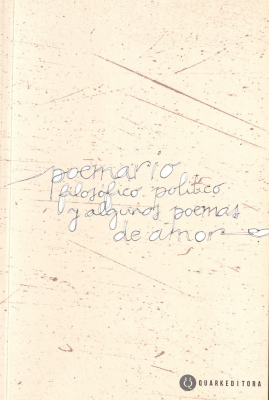 poemario
filosófico, político
y algunos poemas
de amor
QUARKEDITORA